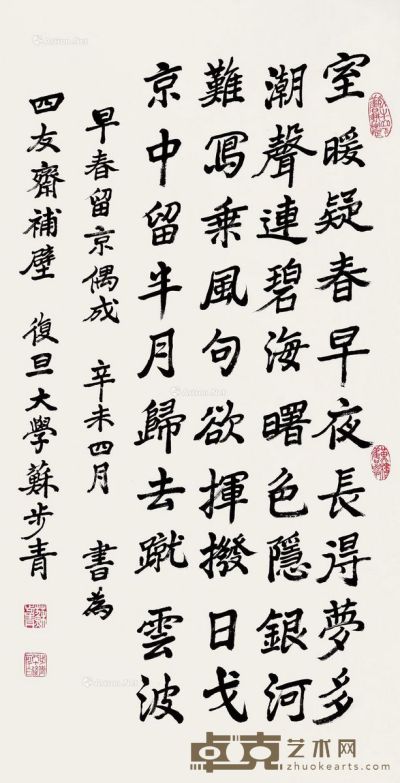 室暖疑春早夜長淂夢多
潮聲連碧海曙色隱銀河
難寫乗風句欲揮撥日戈
京中留半月歸去蹴雲波
早春留京偶成 辛未四月 書為
四友齋補壁 復旦大學蘇步青
卓克艺术网
zhuokearts.com